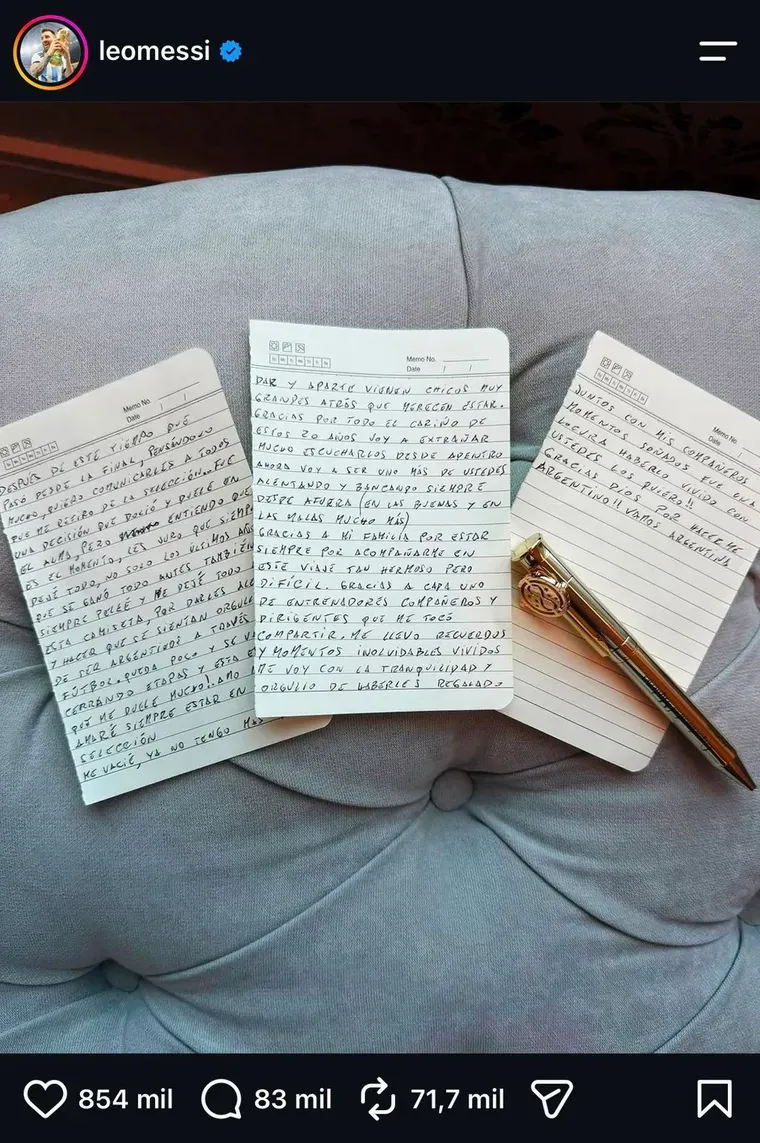 leomessi
Memo No.
Date / /
DESPUÉS DE ESTE TIEMPO QUE
PASÓ DESDE LA FINAL, PENSÁNDOLO
MUCHO, QUIERO COMUNICARLES A TODOS
QUE ME RETIRO DE LA SELECCIÓN... FUE
UNA DECISIÓN QUE DOLIÓ Y DUELE EN
EL ALMA, PERO ENTIENDO QUE
ES EL MOMENTO, LES JURO QUE SIEMPRE
DEJÉ TODO, NO SOLO LOS ÚLTIMOS AÑOS
QUE SE GANÓ TODO ANTES TAMBIÉN
SIEMPRE PELEÉ Y ME DEJÉ TODO
ESTA CAMISETA, POR DARLES ALE
Y HACER QUE SE SIENTAN ORGULL
DE SER ARGENTINOS A TRAVÉS
FÚTBOL. QUEDA POCO Y SE VA
CERRANDO ETAPAS Y ESTA ES
QUE ME DUELE MUCHO! AMO
AMARÉ SIEMPRE ESTAR EN
SELECCIÓN
ME VACIÉ, YA NO TENGO MÁS
Memo No.
Date / /
DAR Y APARTE VIENEN CHICOS MUY
GRANDES ATRÁS QUE MERECEN ESTAR.
GRACIAS POR TODO EL CARIÑO DE
ESTOS 20 AÑOS VOY A EXTRAÑAR
MUCHO ESCUCHARLOS DESDE ADENTRO
AHORA VOY A SER UNO MÁS DE USTEDES
ALENTANDO Y BANCANDO SIEMPRE
DESDE AFUERA (EN LAS BUENAS Y EN
LAS MALAS MUCHO MÁS)
GRACIAS A MI FAMILIA POR ESTAR
SIEMPRE POR ACOMPAÑARME EN
ESTE VIAJE TAN HERMOSO PERO
DIFÍCIL. GRACIAS A CADA UNO
DE ENTRENADORES COMPAÑEROS Y
DIRIGENTES QUE ME TOCÓ
COMPARTIR. ME LLEVO RECUERDOS
Y MOMENTOS INOLVIDABLES VIVIDOS
ME VOY CON LA TRANQUILIDAD Y
ORGULLO DE HABERLES REGALADO
Memo No.
Date /
JUNTOS CON MIS COMPAÑEROS
MOMENTOS SOÑADOS FUE UNA
LOCURA HABERLO VIVIDO CON
USTEDES LOS QUIERO!!
GRACIAS DIOS POR HACERME
ARGENTINO!! VAMOS ARGENTINA
854 mil
83 mil
71,7 mil